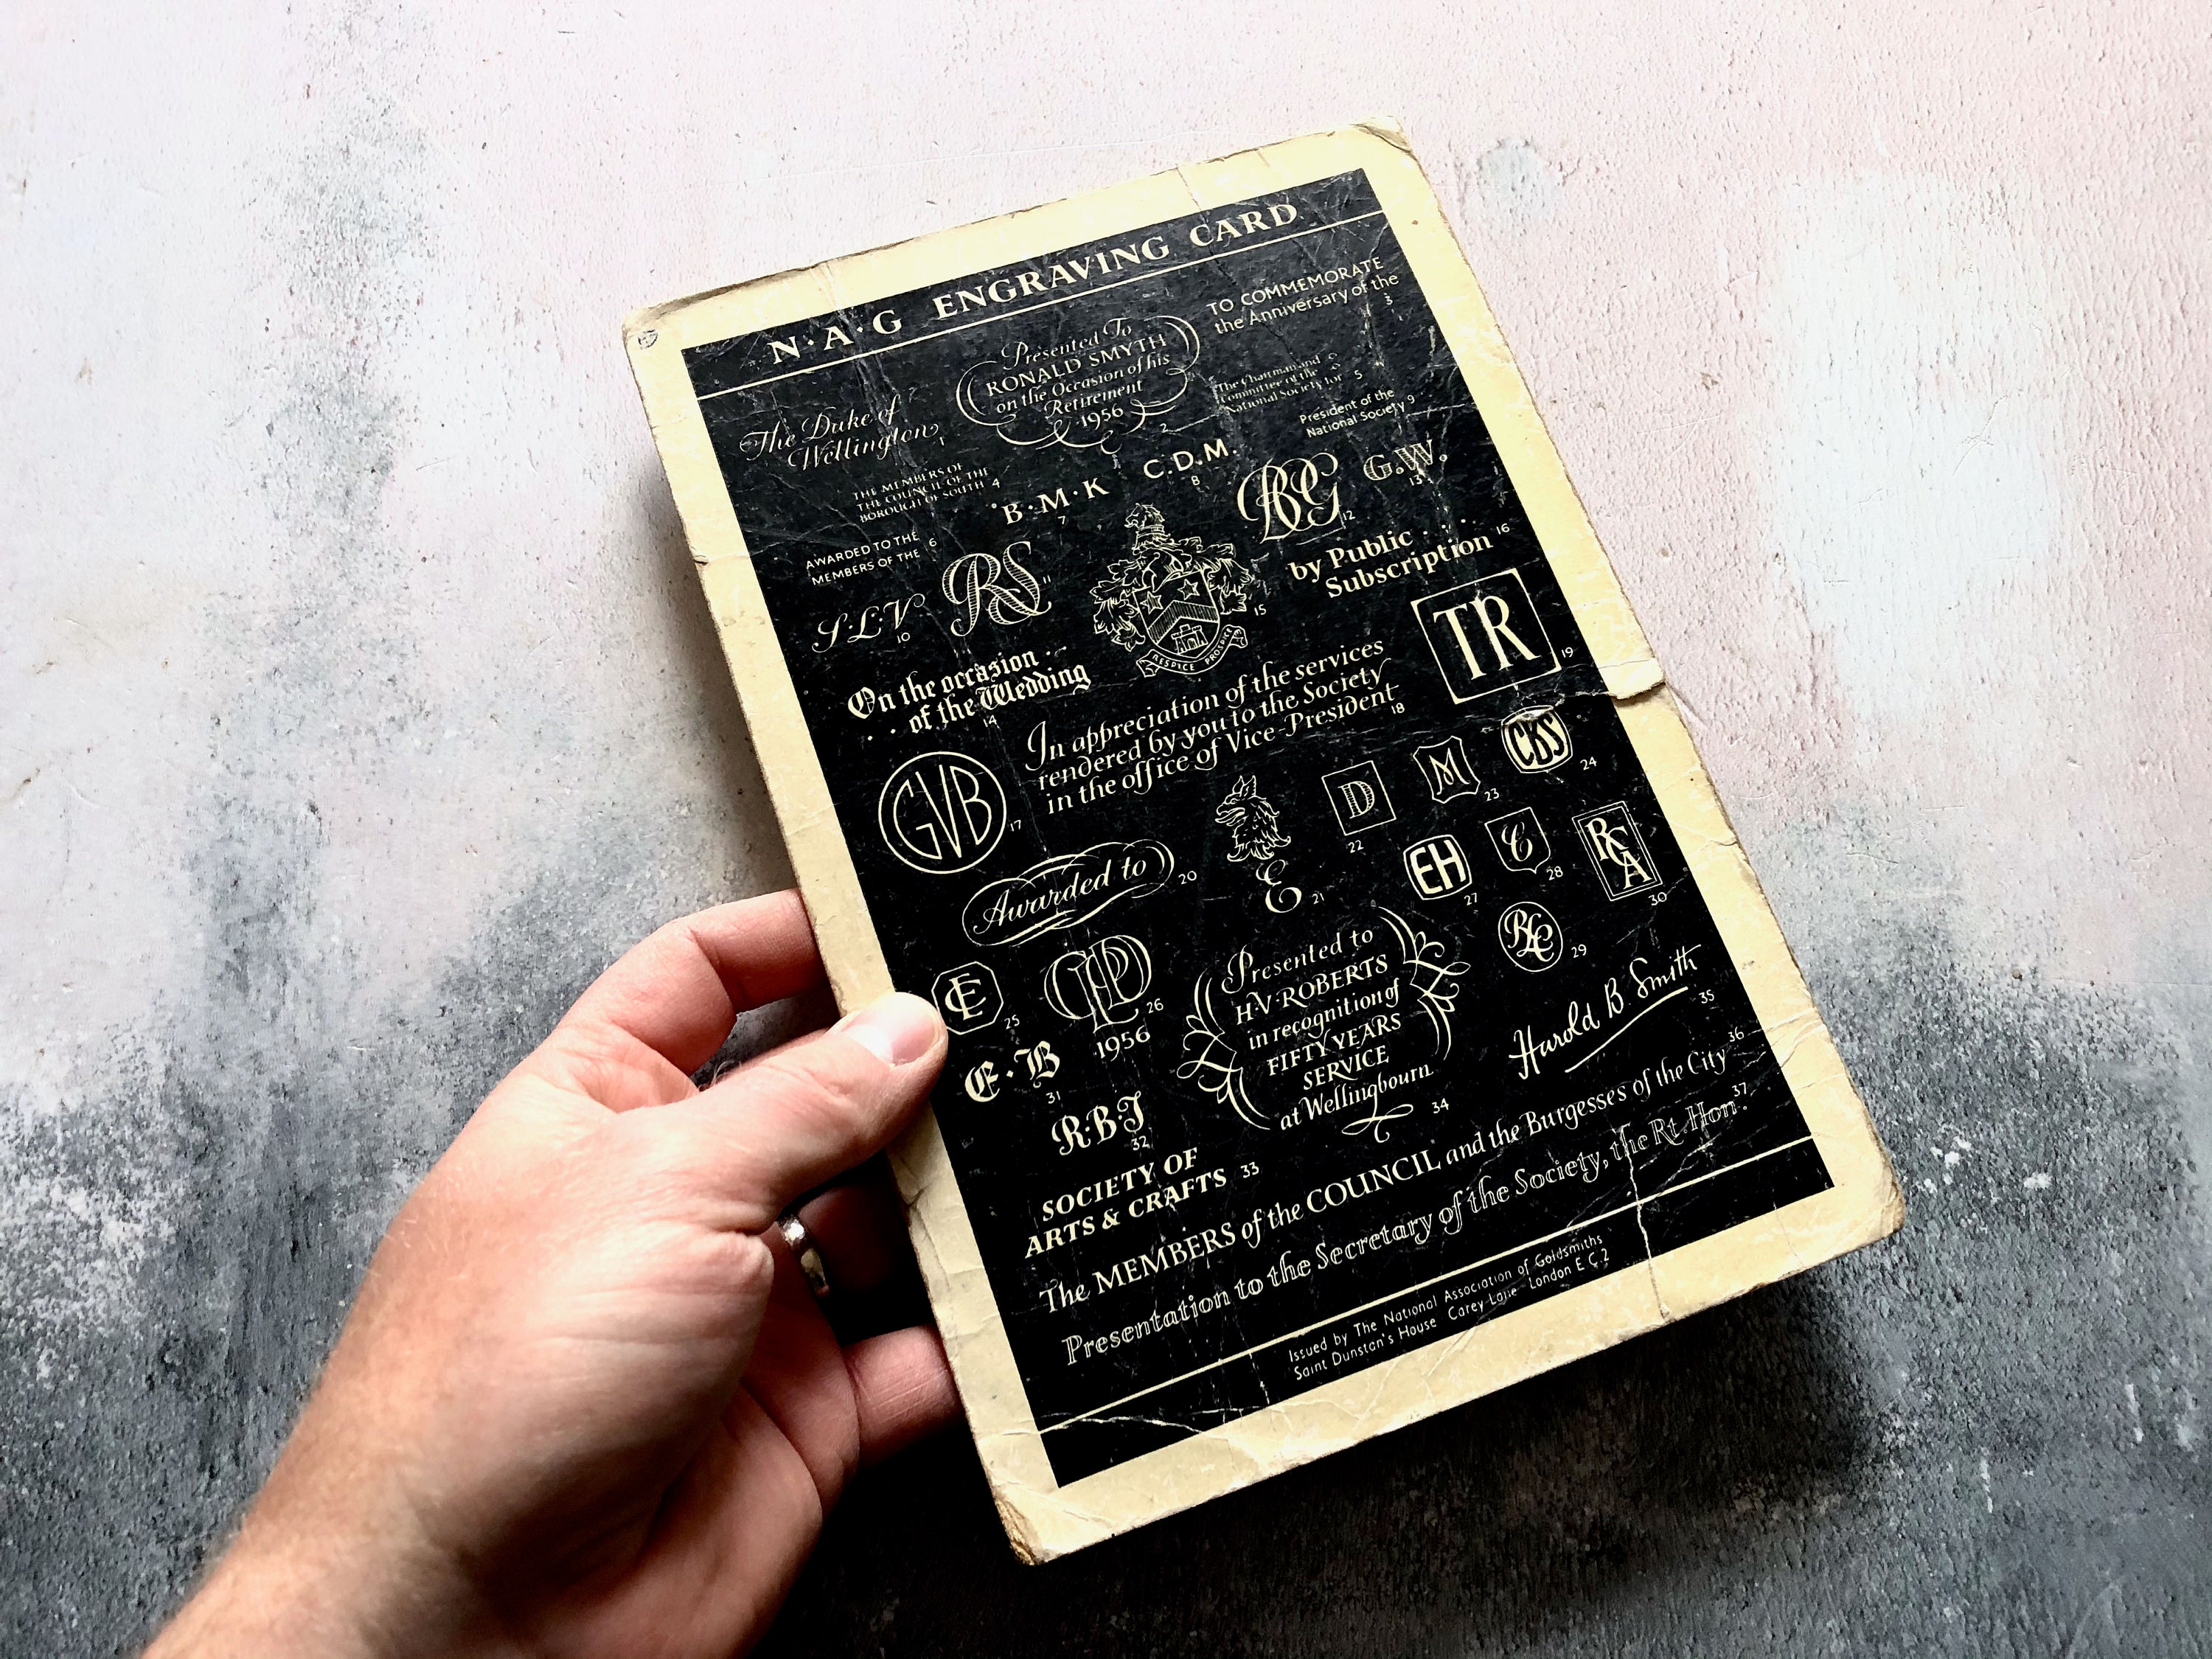 N·A·G ENGRAVING CARD
The Duke of
Wellington
1
Presented To
RONALD SMYTH
on the Occasion of his
Retirement
1956
2
TO COMMEMORATE
the Anniversary of the
3
THE MEMBERS OF
THE COUNCIL OF THE
BOROUGH OF SOUTH 4
The Chairman and
Committee of the
National Society for 5
AWARDED TO THE
MEMBERS OF THE 6
B·M·K
7
C.D.M.
8
President of the
National Society 9
S·L·V
10
RS 11
12
G.W.
13
On the occasion . .
. . of the Wedding
14
RESPICE PROSPICE
15
by Public . . . .
Subscription 16
GVB 17
In appreciation of the services
rendered by you to the Society
in the office of Vice-President
18
TR 19
Awarded to 20
E 21
D
22
M
23
CKS
24
CE
25
26
1956
EH
27
C
28
29
RCA
30
E·B
31
R·B·J
32
SOCIETY OF
ARTS & CRAFTS 33
Presented to
H·V·ROBERTS
in recognition of
FIFTY YEARS
SERVICE
at Wellingbourn
34
Harold B. Smith
35
The MEMBERS of the COUNCIL and the Burgesses of the City 36
Presentation to the Secretary of the Society, the Rt. Hon. 37
Issued by The National Association of Goldsmiths
Saint Dunstan's House Carey Lane London E C 2